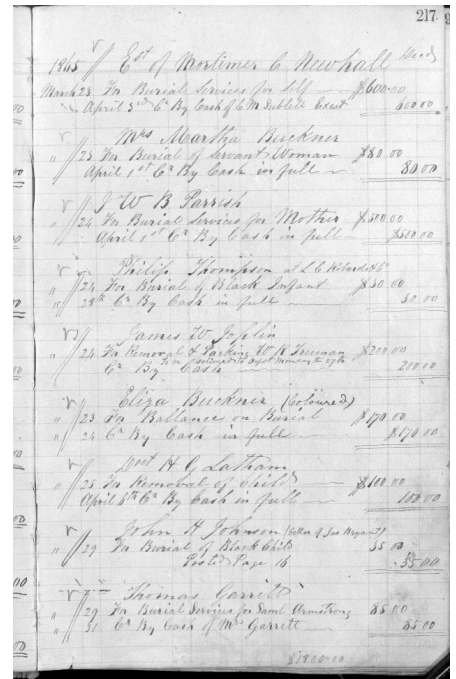 217
1865 Est of Mortimer C Newhall Decd
March 23 For Burial Services for Self $600.00
April 3rd Cr By Cash of C M Sublett Exect 600.00
Mrs Martha Buckner
" 23 For Burial of Servant Woman $80.00
April 1st Cr By Cash in full 80.00
J W B Parrish
" 24 For Burial Services for Mother $500.00
April 1st Cr By Cash in full $500.00
Philip Thompson at L C
" 24 For Burial of Black Infant $50.00
" 28th Cr By Cash in full 50.00
James W Joplin
" 24 For Removal & Packing W R Freeman $200.00
To be delivered to Depot Monday the 27th
Cr By Cash 200.00
Eliza Buckner (Coloured)
" 23 For Ballance on Burial $170.00
" 24 Cr By Cash in full $170.00
Doct H G Latham
" 25 For Removal of Child $100.00
April 6th Cr By Cash in full 100.00
John H Johnson (Coller of Jas Bryant)
" 29 For Burial of Black Child 35.00
Posted Page 16 35.00
Thomas Garrett
" 29 For Burial Services for Saml Armstrong 85.00
" 31 Cr By Cash of Mrs Garrett 85.00
$1800.00